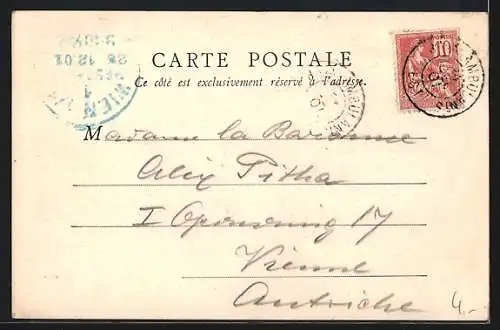 CARTE POSTALE
Ce côté est exclusivement réservé à l'adresse.
Madame la Baronne
Alix Pitha
I Opernring 17
Vienne
Autriche
4.-
28 12.01
WIEN
10